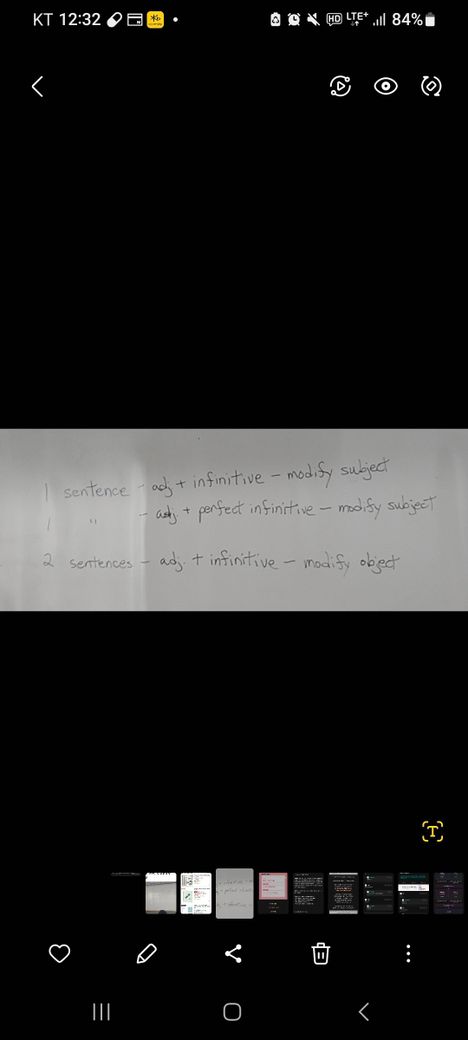 KT 12:32
HD LTE+ 84%
1 sentence - adj + infinitive - modify subject
1 " - adj. + perfect infinitive - modify subject
2 sentences - adj. + infinitive - modify object
T